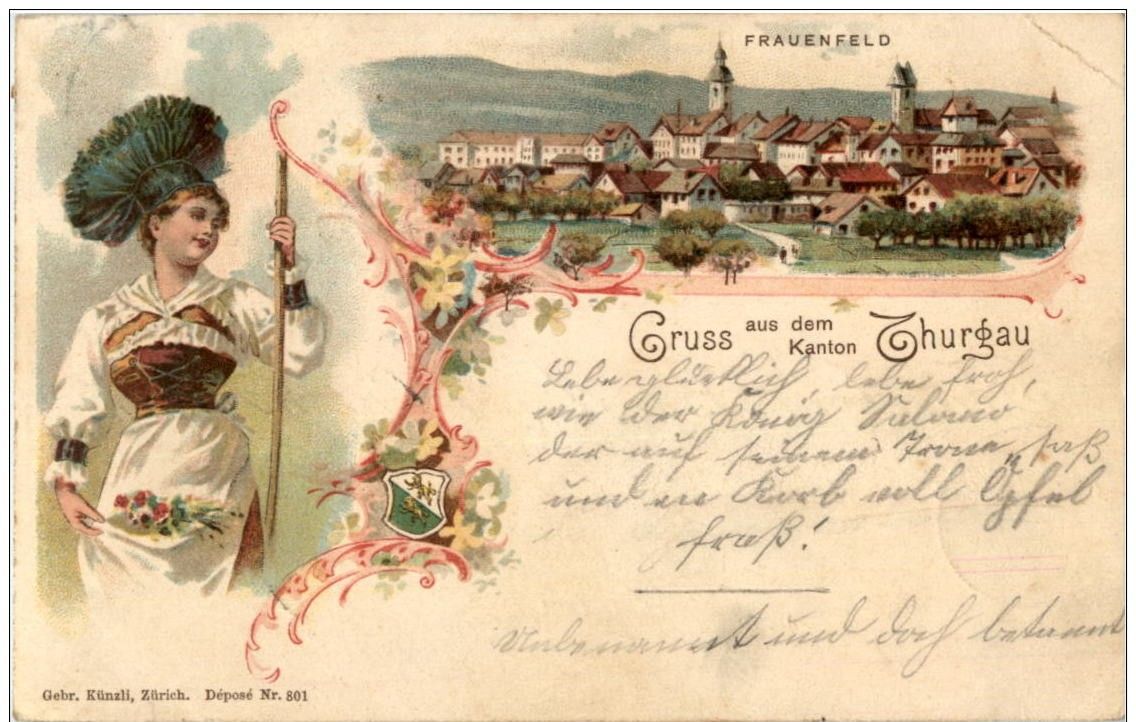 FRAUENFELD
Gruss aus dem Kanton Thurgau
Lebe glücklich, lebe froh,
wie der König Salomo
der auf seinem Trone saß
und en Korb voll Öpfel
fraß!
Unbenannt und doch bekannt
Gebr. Künzli, Zürich. Déposé Nr. 801